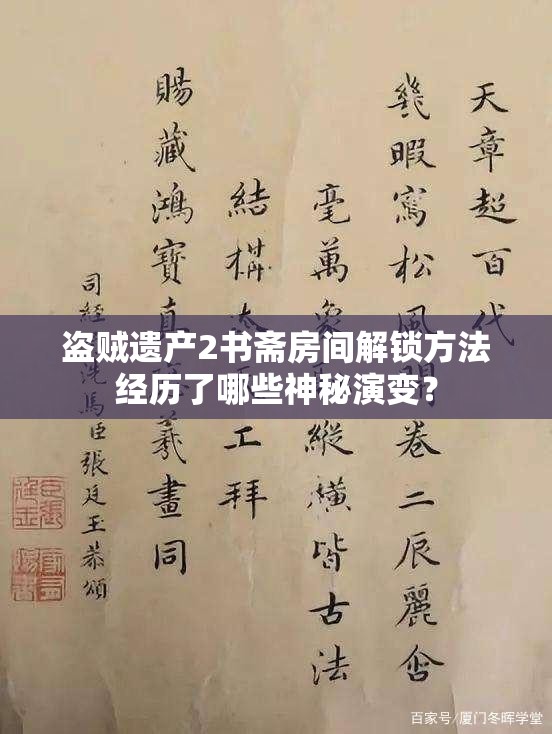 天章超百代
幾暇寫松風 卷二辰麗舍
毫萬象 縱橫皆古法
結構太 工拜
賜藏鴻寶直 羲畫同
司經 洗馬臣張廷玉恭頌
盗贼遗产2书斋房间解锁方法
经历了哪些神秘演变？
百家号/厦门冬晖学堂